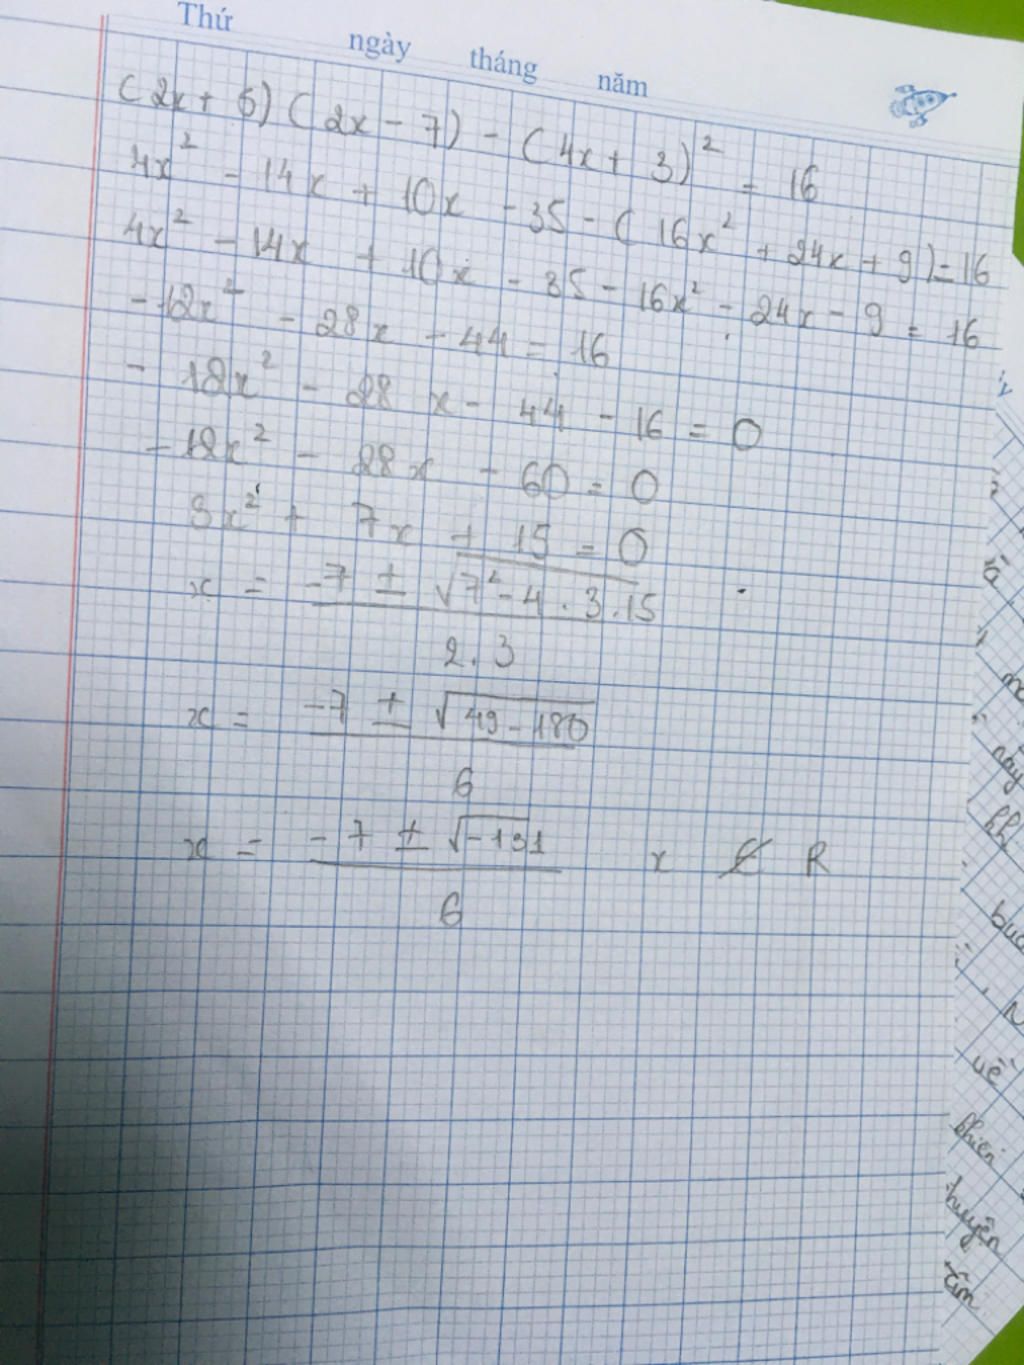 Thứ ngày tháng năm
(2x + 5)(2x - 7) - (4x + 3)² = 16
4x² - 14x + 10x - 35 - (16x² + 24x + 9) = 16
4x² - 14x + 10x - 35 - 16x² - 24x - 9 = 16
- 12x² - 28x - 44 = 16
- 12x² - 28x - 44 - 16 = 0
- 12x² - 28x - 60 = 0
3x² + 7x + 15 = 0
x = (-7 ± √(7² - 4 . 3 . 15)) / (2 . 3)
x = (-7 ± √(49 - 180)) / 6
x = (-7 ± √(-131)) / 6 x ∉ R
này
khi
buc
về
thiên
huyền
tim